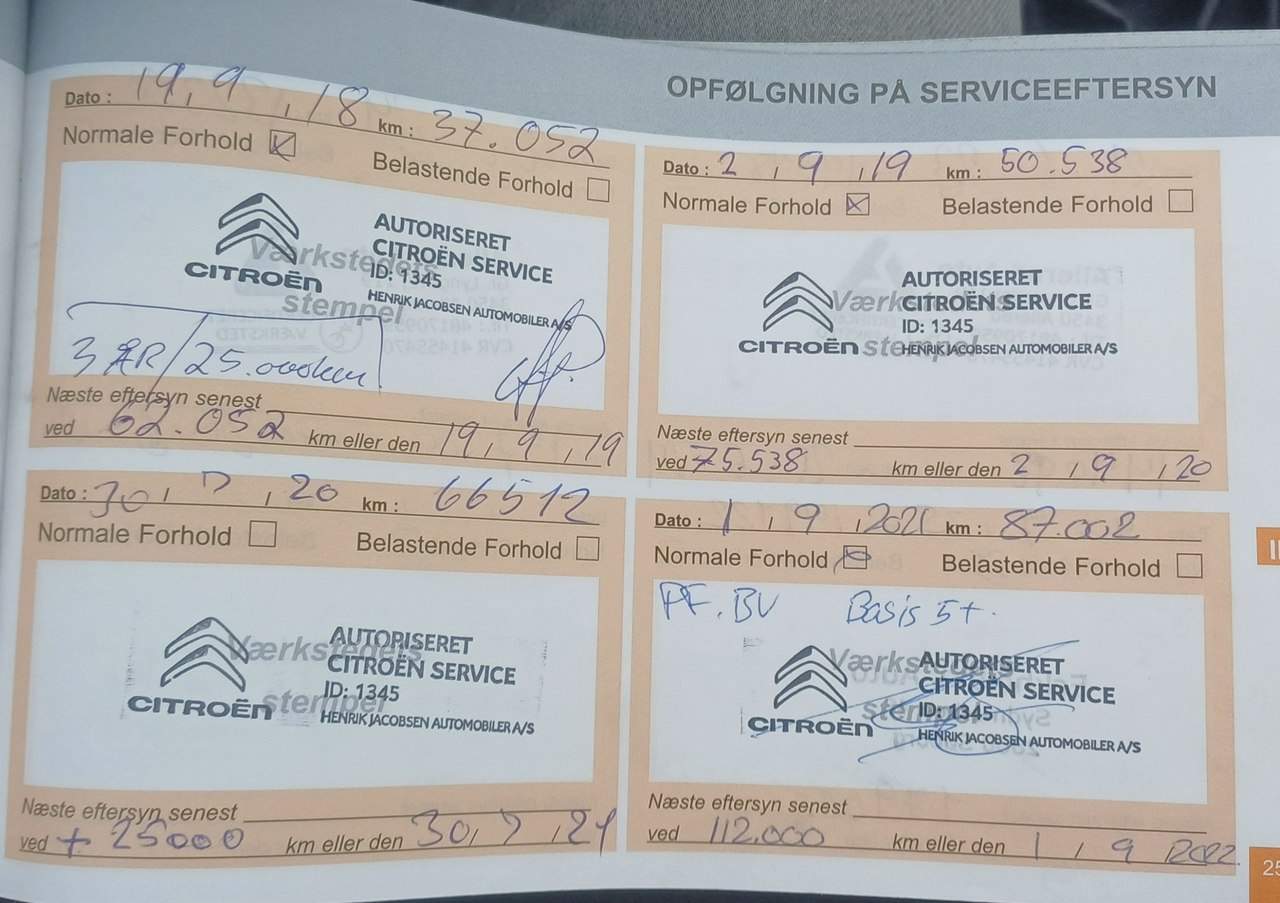 OPFØLGNING PÅ SERVICEEFTERSYN
Dato : 19, 9 , 18 km : 37.052
Normale Forhold Belastende Forhold
Værksteders stempel
CITROËN
AUTORISERET
CITROËN SERVICE
ID: 1345
HENRIK JACOBSEN AUTOMOBILER A/S
3 ÅR/25.000km
Næste eftersyn senest
ved 62.052 km eller den 19, 9, 19
Dato : 2 , 9 , 19 km : 50.538
Normale Forhold Belastende Forhold
CITROËN
AUTORISERET
CITROËN SERVICE
ID: 1345
HENRIK JACOBSEN AUTOMOBILER A/S
Næste eftersyn senest
ved 75.538 km eller den 2 , 9 , 20
Dato : 30, 7 , 20 km : 66512
Normale Forhold Belastende Forhold
Værksteders stempel
CITROËN
AUTORISERET
CITROËN SERVICE
ID: 1345
HENRIK JACOBSEN AUTOMOBILER A/S
Næste eftersyn senest
ved + 25000 km eller den 30, 7 , 21
Dato : 1 , 9 , 2021 km : 87.002
Normale Forhold Belastende Forhold
PF. BV Basis 5+.
CITROËN
AUTORISERET
CITROËN SERVICE
ID: 1345
HENRIK JACOBSEN AUTOMOBILER A/S
Næste eftersyn senest
ved 112.000 km eller den 1 , 9 2022
25